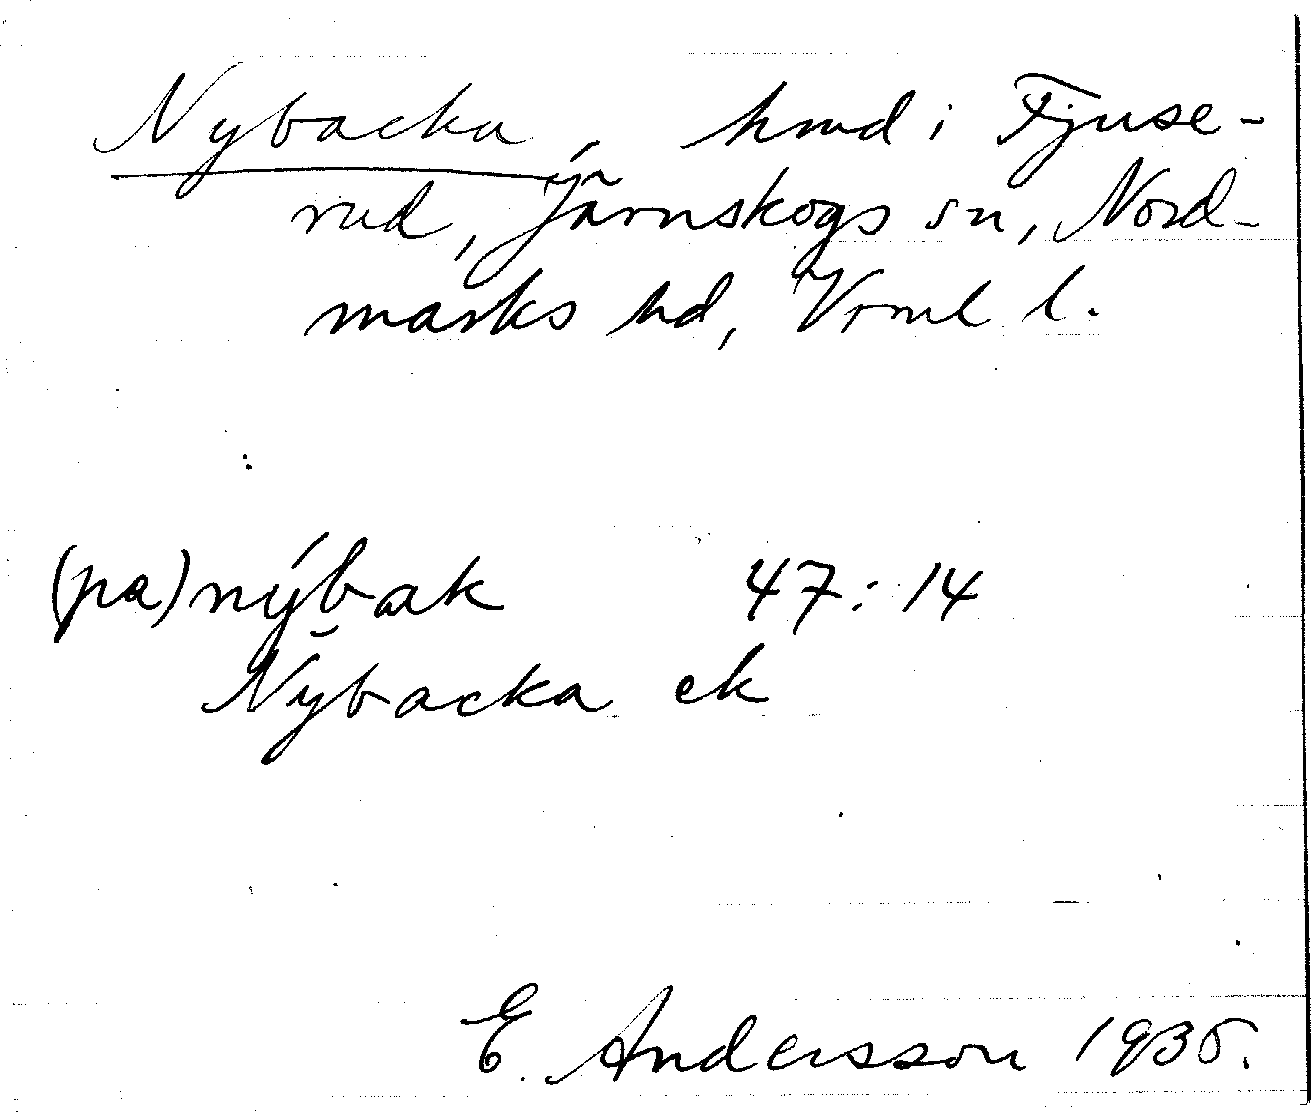 Nybacka, hmd i Fjuse-
rud, Järnskogs sn, Nord-
marks hd, Vrml l.
(pa) nýbak 47:14
Nybacka ek
E. Andersson 1935.